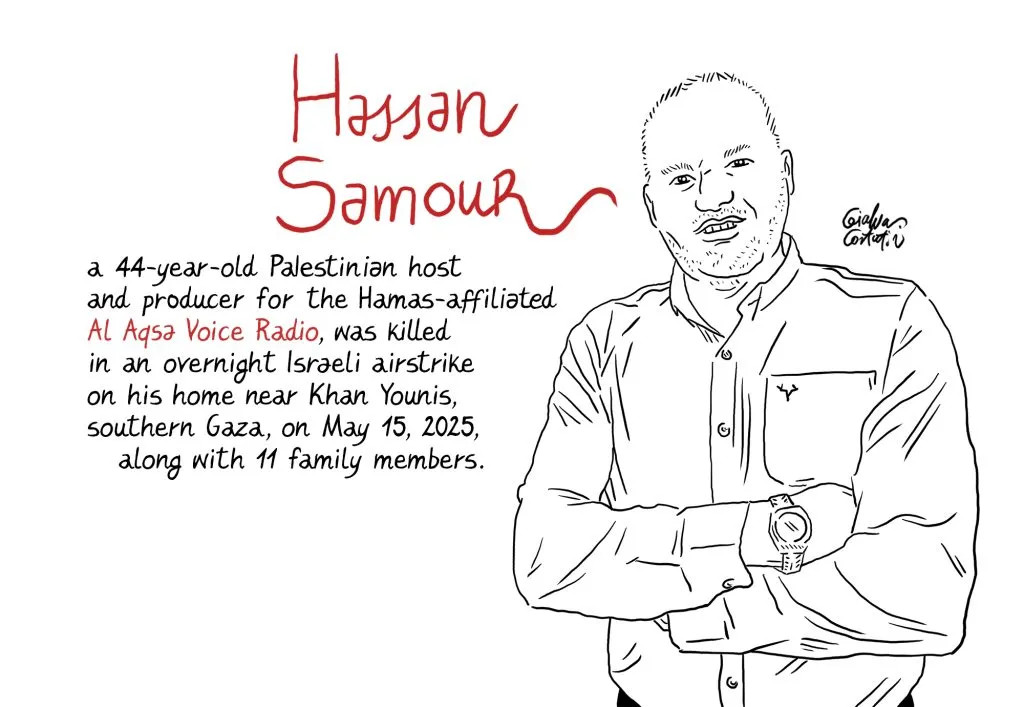 Hassan
Samour
a 44-year-old Palestinian host
and producer for the Hamas-affiliated
Al Aqsa Voice Radio, was killed
in an overnight Israeli airstrike
on his home near Khan Younis,
southern Gaza, on May 15, 2025,
along with 11 family members.